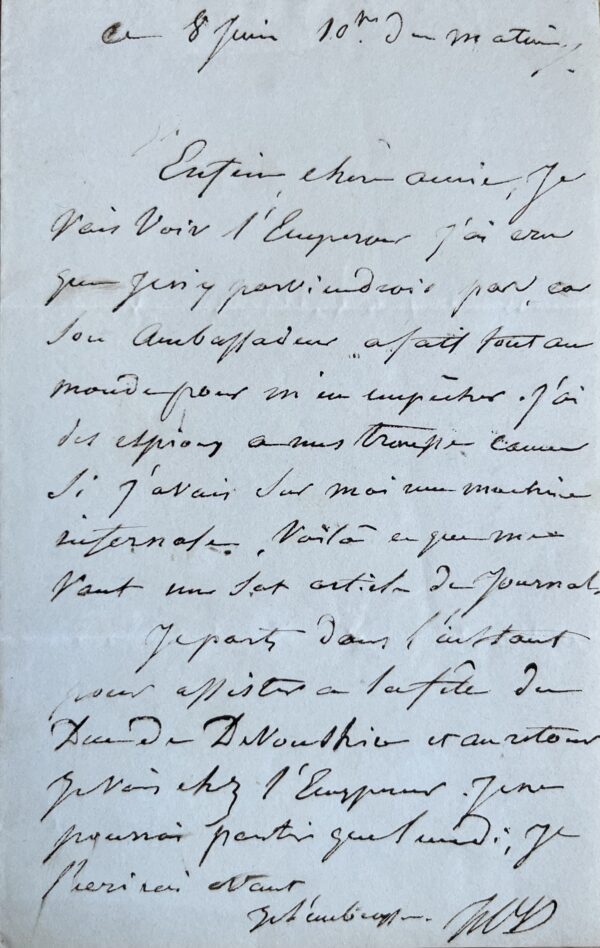 ce 8 Juin 10h du matin
Enfin, chère amie, Je
Vais Voir l'Empereur J'ai cru
que Je n'y parviendrois pas, car
Son Ambassadeur a fait tout au
monde pour m'en empêcher. J'ai
des espions a mes trousses comme
Si J'avais Sur moi une machine
infernale. Voilà ce que me
Vaut un Sot article de Journal
Je parts dans l'instant
pour assister a la fête du
Duc de Devonshire et au retour
Je Vais chez l'Empereur. Je ne
pourrai partir que lundi, Je
t'ecrirai avant
Je t'embrasse.